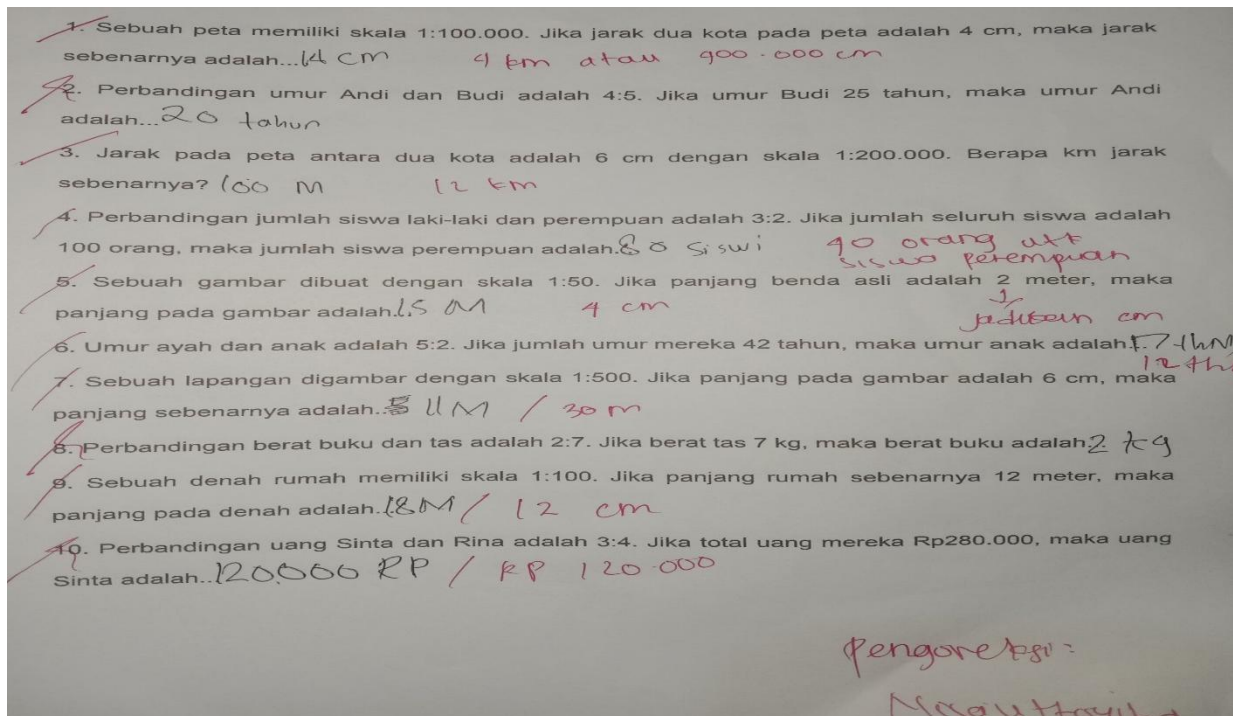 1. Sebuah peta memiliki skala 1:100.000. Jika jarak dua kota pada peta adalah 4 cm, maka jarak
sebenarnya adalah...14 cm 4 km atau 400.000 cm
2. Perbandingan umur Andi dan Budi adalah 4:5. Jika umur Budi 25 tahun, maka umur Andi
adalah...20 tahun
3. Jarak pada peta antara dua kota adalah 6 cm dengan skala 1:200.000. Berapa km jarak
sebenarnya? 100 M 12 km
4. Perbandingan jumlah siswa laki-laki dan perempuan adalah 3:2. Jika jumlah seluruh siswa adalah
100 orang, maka jumlah siswa perempuan adalah. 80 siswi 40 orang utk
siswa perempuan
5. Sebuah gambar dibuat dengan skala 1:50. Jika panjang benda asli adalah 2 meter, maka
panjang pada gambar adalah.1,5 M 4 cm jadikan cm
6. Umur ayah dan anak adalah 5:2. Jika jumlah umur mereka 42 tahun, maka umur anak adalah 7 thn
12 th
7. Sebuah lapangan digambar dengan skala 1:500. Jika panjang pada gambar adalah 6 cm, maka
panjang sebenarnya adalah.. 11 M / 30 m
8. Perbandingan berat buku dan tas adalah 2:7. Jika berat tas 7 kg, maka berat buku adalah 2 kg
9. Sebuah denah rumah memiliki skala 1:100. Jika panjang rumah sebenarnya 12 meter, maka
panjang pada denah adalah.18 M / 12 cm
10. Perbandingan uang Sinta dan Rina adalah 3:4. Jika total uang mereka Rp280.000, maka uang
Sinta adalah..120.000 RP / RP 120.000
Pengoreksi: